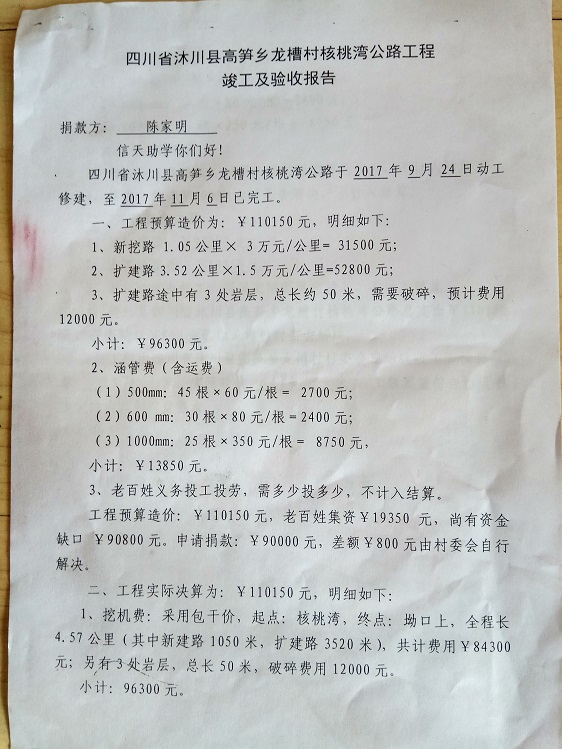 四川省沐川县高笋乡龙槽村核桃湾公路工程
竣工及验收报告
捐款方： 陈家明
信天助学你们好！
四川省沐川县高笋乡龙槽村核桃湾公路于 2017 年 9 月 24 日动工
修建，至 2017 年 11 月 6 日已完工。
一、工程预算造价为：￥110150 元，明细如下：
1、新挖路 1.05 公里× 3 万元/公里= 31500 元；
2、扩建路 3.52 公里×1.5 万元/公里=52800 元；
3、扩建路途中有 3 处岩层，总长约 50 米，需要破碎，预计费用
12000 元。
小计：￥96300 元。
2、涵管费（含运费）
（1）500mm：45 根×60 元/根＝ 2700 元；
（2）600 mm：30 根×80 元/根＝2400 元；
（3）1000mm：25 根×350 元/根＝ 8750 元，
小计：￥13850 元。
3、老百姓义务投工投劳，需多少投多少，不计入结算。
工程预算造价：￥110150 元，老百姓集资￥19350 元，尚有资金
缺口 ￥90800 元。申请捐款：￥90000 元，差额￥800 元由村委会自行
解决。
二、工程实际决算为：￥110150 元，明细如下：
1、挖机费：采用包干价，起点：核桃湾，终点：坳口上，全程长
4.57 公里（其中新建路 1050 米，扩建路 3520 米），共计费用￥84300
元；另有 3 处岩层，总长 50 米，破碎费用 12000 元。
小计：96300 元。